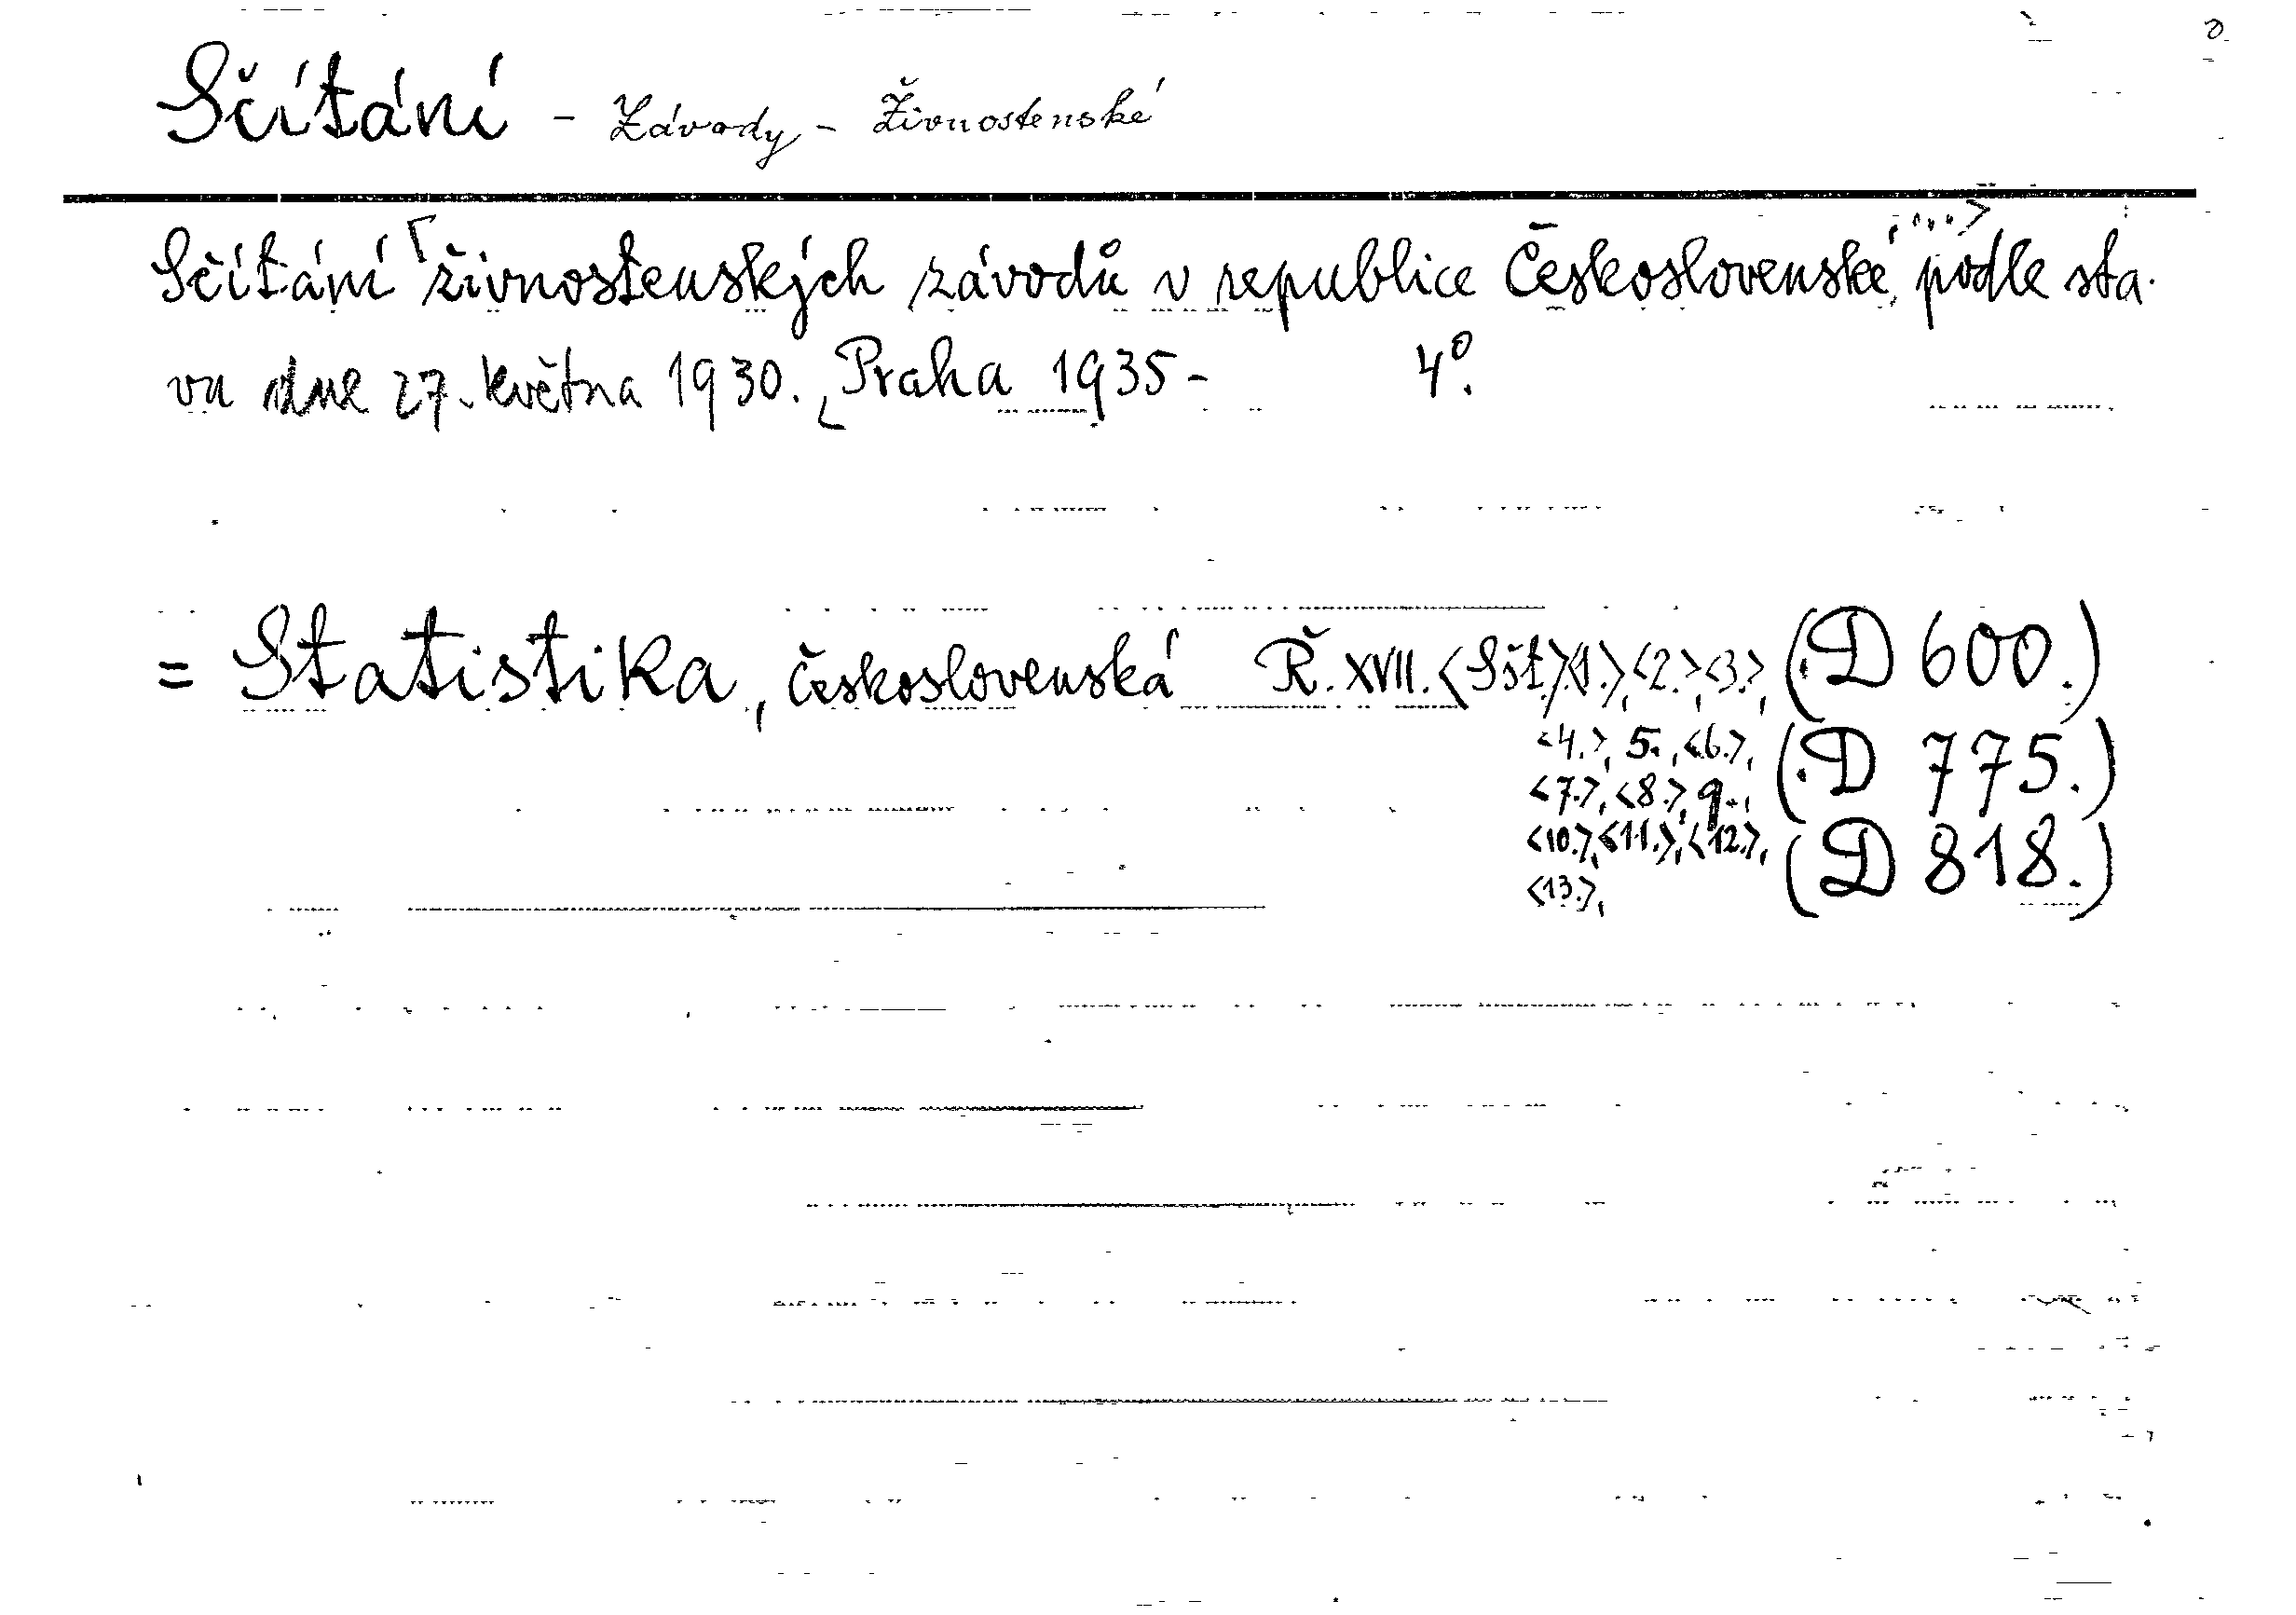 Sčítání - Závody - Živnostenské
Sčítání živnostenských závodů v republice Československé ...> podle sta-
vu dne 27. května 1930. Praha 1935- 4°.
= Statistika, československá Ř. XVII. <Sčít.> <1.>, <2.>, <3.>, (D 600.)
<4.>, 5., <6.>, (D 775.)
<7.>, <8.>, 9.,
<10.>, <11.>, <12.>, (D 818.)
<13.>,